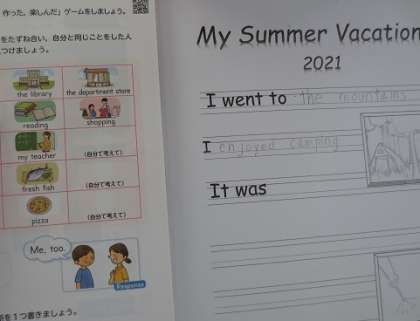 作った、楽しんだ」ゲームをしましょう。
をたずね合い、自分と同じことをした人
つけましょう。
the library
the department store
reading
shopping
my teacher
(自分で考えて)
fresh fish
(自分で考えて)
pizza
(自分で考えて)
Me, too.
Response
を1つ書きましょう。
My Summer Vacation
2021
I went to the mountains
I enjoyed camping
It was